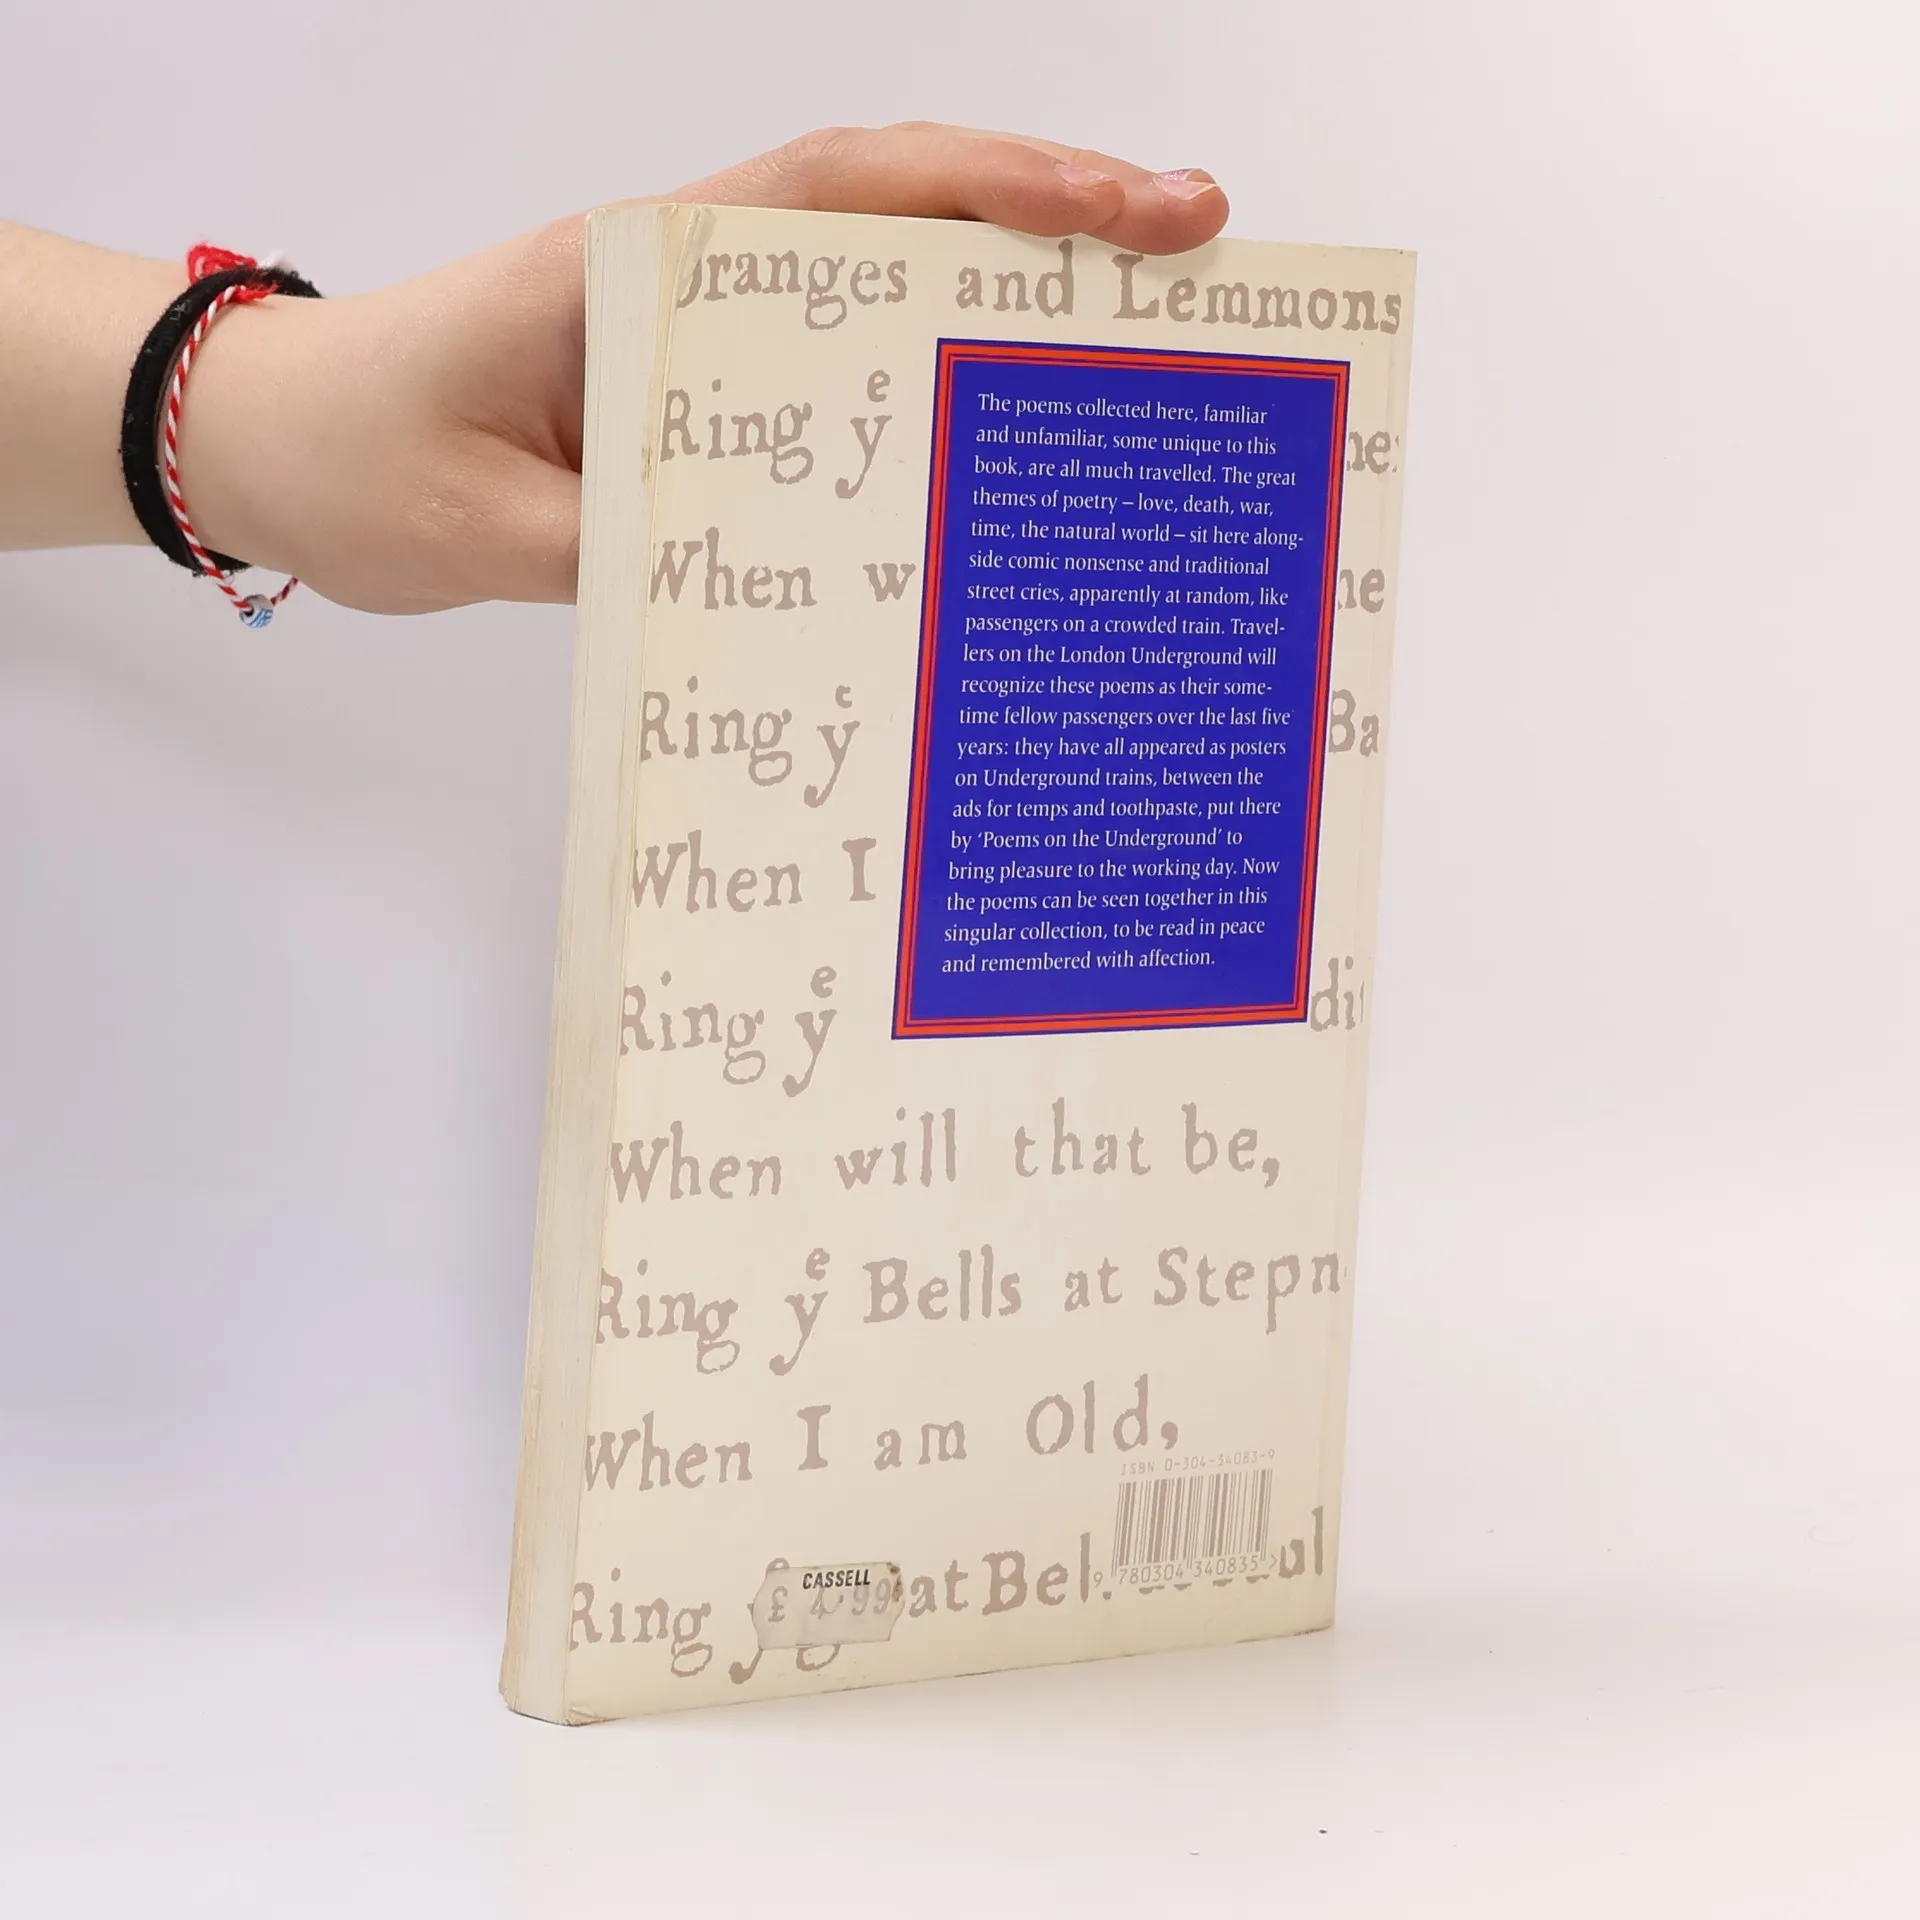 Oranges and Lemmons
Ring yᵉ
When
Ring yᵉ
Ba
When I
Ring yᵉ
When will that be,
Ring yᵉ Bells at Stepn
When I am Old,
Ring
at
The poems collected here, familiar
and unfamiliar, some unique to this
book, are all much travelled. The great
themes of poetry – love, death, war,
time, the natural world – sit here along-
side comic nonsense and traditional
street cries, apparently at random, like
passengers on a crowded train. Travel-
lers on the London Underground will
recognize these poems as their some-
time fellow passengers over the last five
years: they have all appeared as posters
on Underground trains, between the
ads for temps and toothpaste, put there
by ‘Poems on the Underground’ to
bring pleasure to the working day. Now
the poems can be seen together in this
singular collection, to be read in peace
and remembered with affection.
ISBN 0-304-34083-9
9 780304 340835 >
CASSELL
£ 4.99